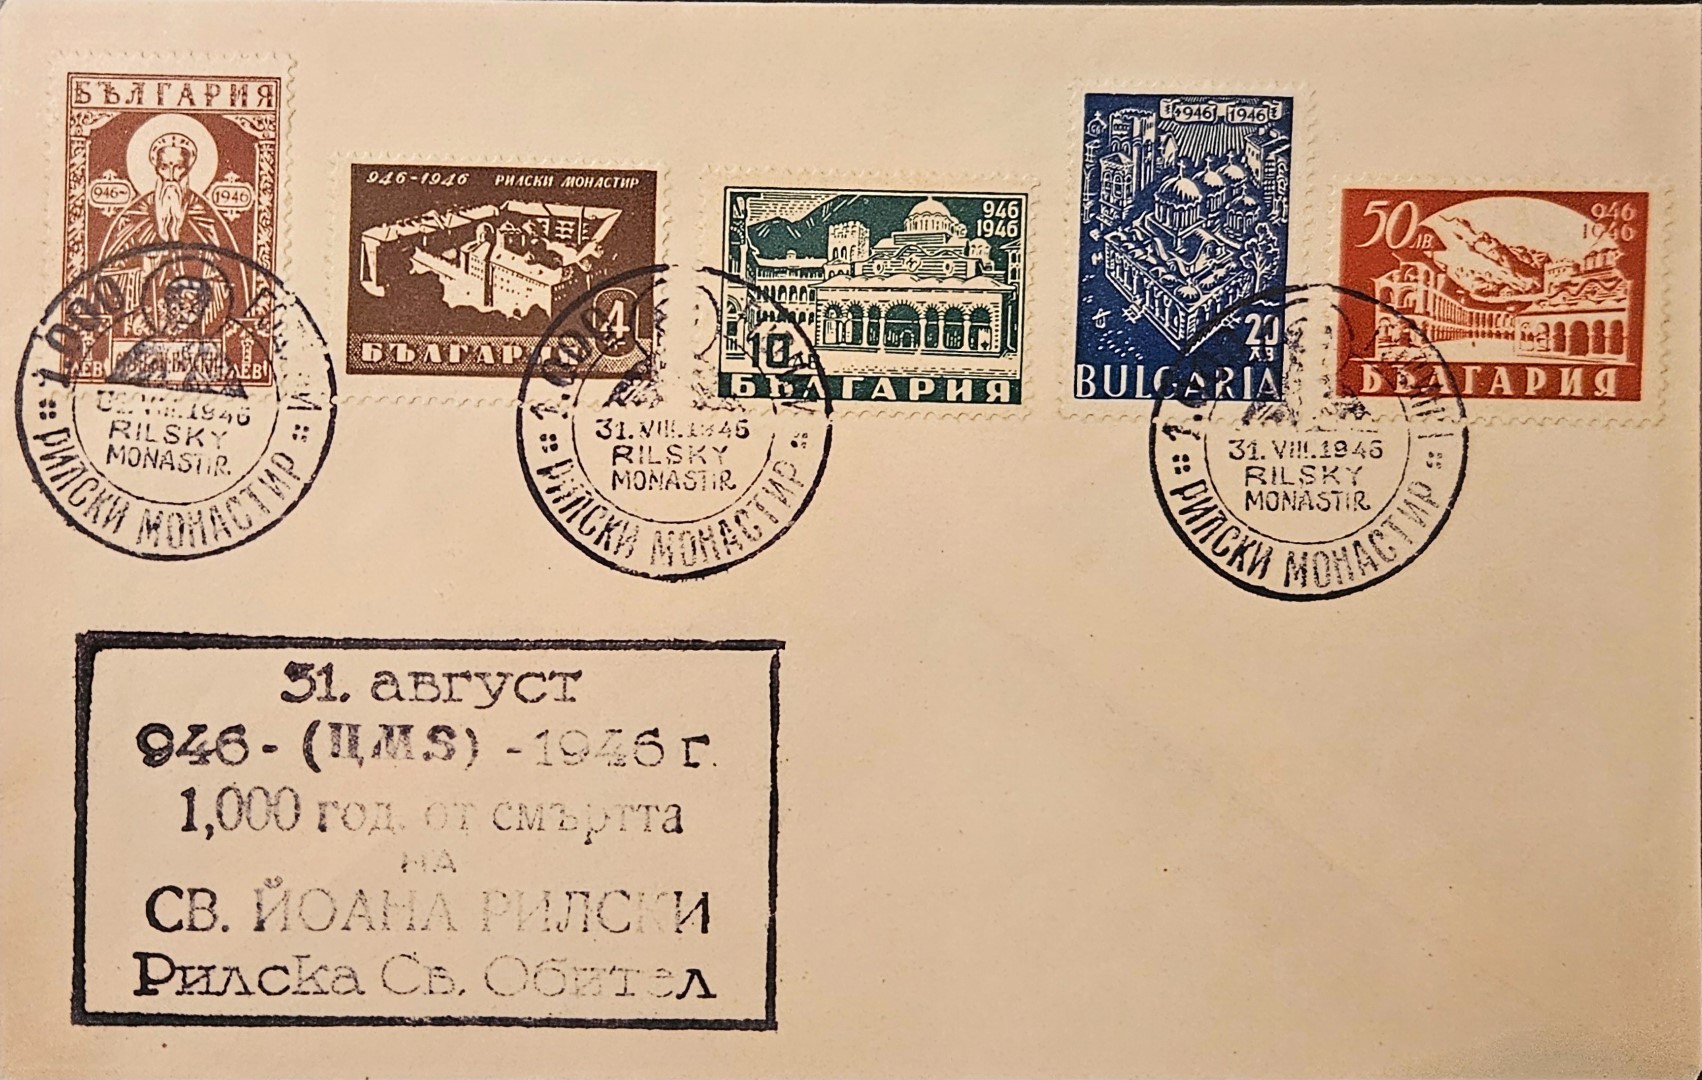 БЪЛГАРИЯ
946-
1946
ЛЕВ
ЛЕВ
946-1946 РИЛСКИ МОНАСТИР
4
БЪЛГАР
946
1946
10
БЪЛГАРИЯ
946 1946
20
ЛВ
BULGARIA
50 ЛВ
946
1946
БЪЛГАРИЯ
1.000
VIII.1946
RILSKY
MONASTIR
РИЛСКИ МОНАСТИР
1.000
31.VIII.1946
RILSKY
MONASTIR
РИЛСКИ МОНАСТИР
31.VIII.1946
RILSKY
MONASTIR
РИЛСКИ МОНАСТИР
31. август
946-(ЦМЅ)-1946 г.
1,000 год. от смъртта
НА
СВ. ЙОАНА РИЛСКИ
Рилска Св. Обител